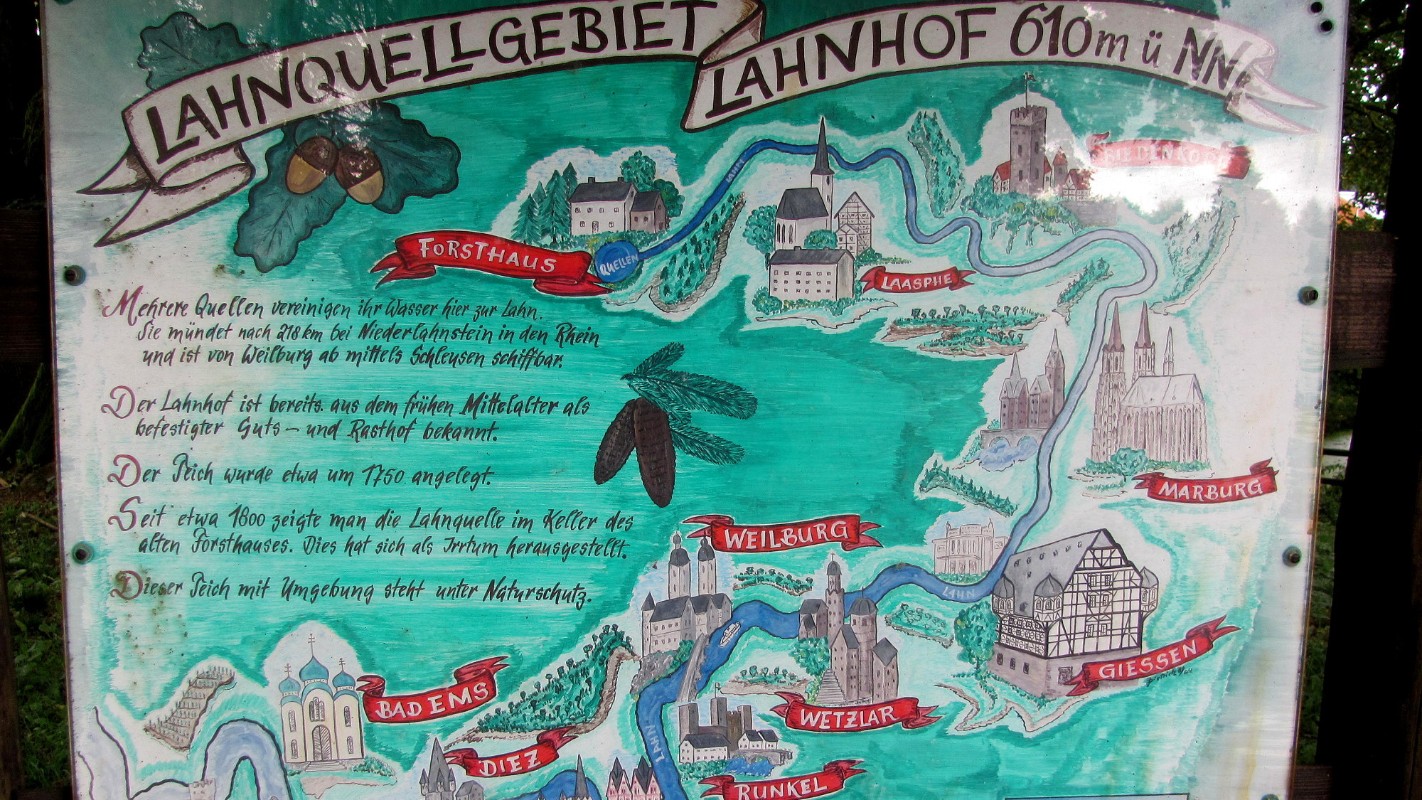 LAHNQUELLGEBIET
LAHNHOF 610 m ü NN.
FORSTHAUS
QUELLEN
LAHN
LAASPHE
BIEDENKOPF
Mehrere Quellen vereinigen ihr Wasser hier zur Lahn.
Sie mündet nach 218 km bei Niederlahnstein in den Rhein
und ist von Weilburg ab mittels Schleusen schiffbar.
Der Lahnhof ist bereits aus dem frühen Mittelalter als
befestigter Guts- und Rasthof bekannt.
Der Teich wurde etwa um 1750 angelegt.
Seit etwa 1800 zeigte man die Lahnquelle im Keller des
alten Forsthauses. Dies hat sich als Irrtum herausgestellt.
Dieser Teich mit Umgebung steht unter Naturschutz.
MARBURG
WEILBURG
LAHN
GIESSEN
WETZLAR
BAD EMS
LAHN
DIEZ
RUNKEL